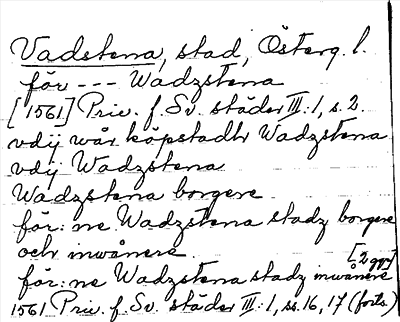 Vadstena, stad, Österg. l.
för --- Wadzstena
[1561] Priv. f. Sv. städer III:1, s. 2.
vdij wår köpstadh Wadzstena
vdij Wadzstena
Wadzstena borgere
för:ne Wadzstena stadz borgere
och inwånere [2 ggr]
för:ne Wadzstena stadz inwånere
1561 Priv. f. Sv. städer III:1, ss. 16, 17 (forts.)